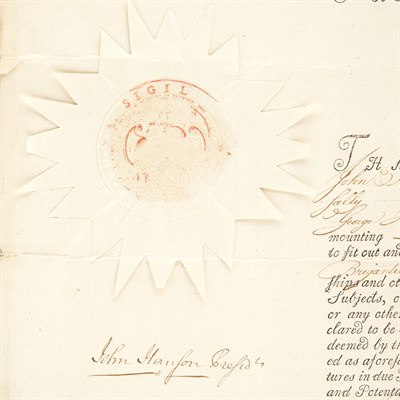 SIGIL
TH
John
Sally
George
mounting
to fit out and
Brigantine
ships and ot
Subjects, o
or any othe
clared to be
deemed by th
ed as aforesa
tures in due
and Potenta
John Hanson Presidt